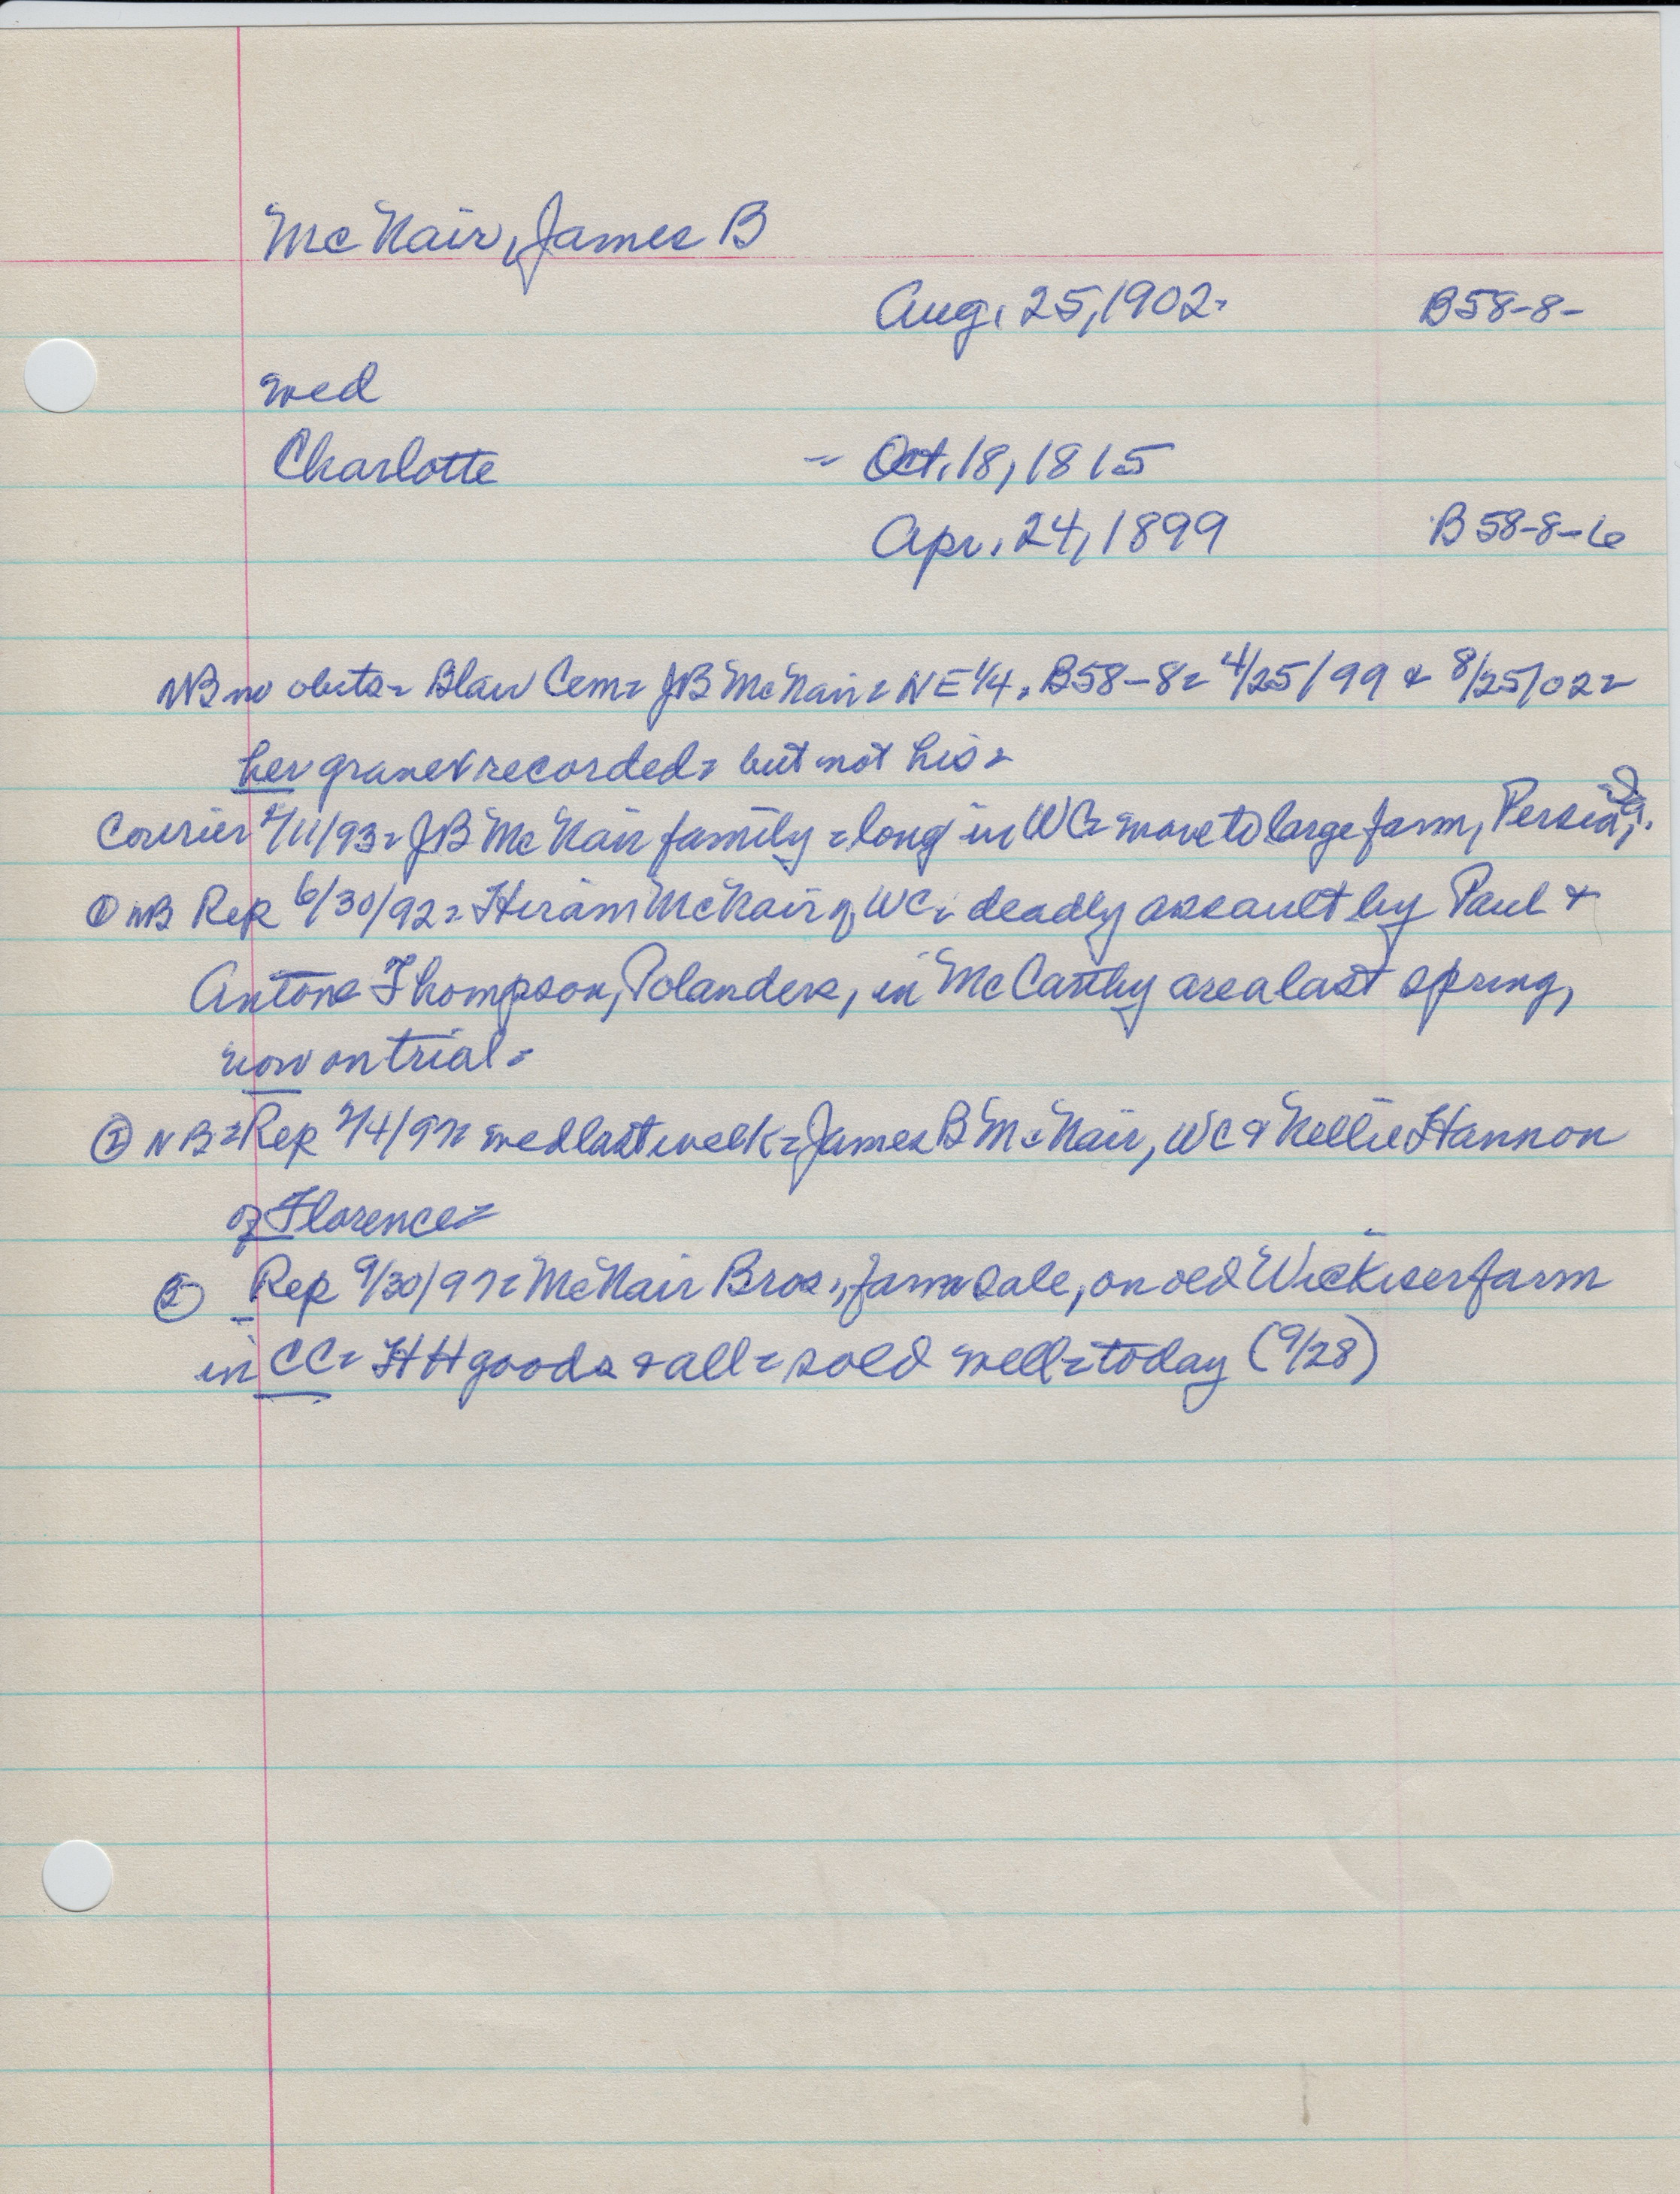 McNair, James B
Aug. 25, 1902- B58-8-
wed
Charlotte - Oct. 18, 1815
Apr. 24, 1899 B58-8-6
NB no obits= Blair Cem= JB McNair= NE 1/4. B58-8= 4/25/99 & 8/25/02=
her grave recorded= but not his=
Courier /11/93= JB McNair family= long in WC= move to large farm, Persia,
① NB Rep 6/30/92= Hiram McNair of WC= deadly assault by Paul &
Antone Thompson, Polanders, in McCarthy area last spring,
now on trial=
② NB= Rep /4/97= wed last week= James B McNair, WC & Nellie Hannon
of Florence=
Rep 9/30/97= McNair Bros., farm sale, on old Wickiser farm
in CC= HH goods & all= sold well= today (9/28)